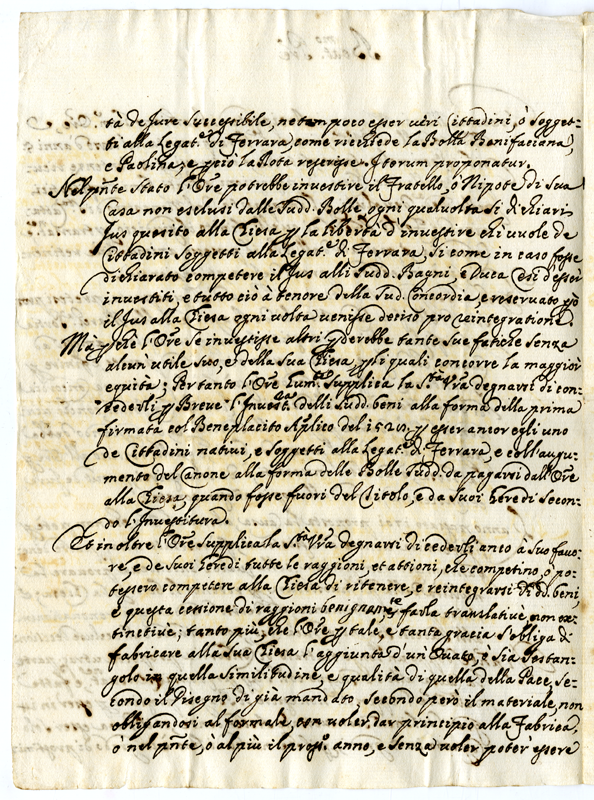 tà de Jure Successibile, ne tam poco esser veri Cittadini, ò sogget=
ti alla Legat.e di Ferrara, come ricchiede la Bolla Bonifaciana,
e Paolina, e p.ciò la Rota rescrisse Iterum proponatur.
Nel p̃nte Stato l'Ore potrebbe investire il Fratello, ò Nipote di Sua
Casa non esclusi dalle Sudd. Bolle, ogni qualvolta si dichiari
Jus quesito alla Chiesa p la libertà d'investire chi vuole de
Cittadini Soggetti alla Legat.e di Ferrara, si come in caso fosse
dichiarato competere il Jus alli Sudd. Bagni, e Duca Cesi d'esser
investiti, e tutto ciò à tenore della Sud. Concordia, e reservato p.ò
il Jus alla Chiesa ogni volta venisse deciso pro reintegratione.
Mà p che l'Ore se investisse altri p.derebbe tante sue fatiche senza
alcun utile suo, e della sua Chiesa, p li quali concorre la maggior
equità; Per tanto l'Ore hum.te Supplica la S.tà Vrã degnarsi di con=
cederli p Breve l'Invest.ra delli Sudd. beni alla forma della prima
firmata col Beneplacito Aplico del 1525, p esser ancor egli uno
de Cittadini nativi, e soggetti alla Legat.e di Ferrara, e coll'augu=
mento del Canone alla forma delle Bolle Sudd. da pagarsi dall'Ore
alla Chiesa, quando fosse fuori del Titolo, e da suoi heredi secon=
do l'Investitura.
Et in oltre l'Ore Supplica la S.tà Vrã degnarsi di cederli anco à suo favo=
re, e de suoi heredi tutte le raggioni, et attioni, che competino, ò po=
tessero competere alla Chiesa di ritenere, e reintegrarsi di dd. beni
e questa cessione di raggioni benignam.te farla translativè, non ex=
tinctivè; tanto più, che l'Ore p tale, e tanta gracia s'obliga di
fabricare alla sua Chiesa l'aggiunta d'un Ovato, ò sia Sestan=
golo in quella similitudine, e qualità di quella della Pace, se=
condo il Disegno di già mandato, secondo però il materiale, non
obligandosi al formale, con voler dar principio alla Fabrica,
ò nel p̃nte, ò al più il pross.o anno, e senza voler poter essere